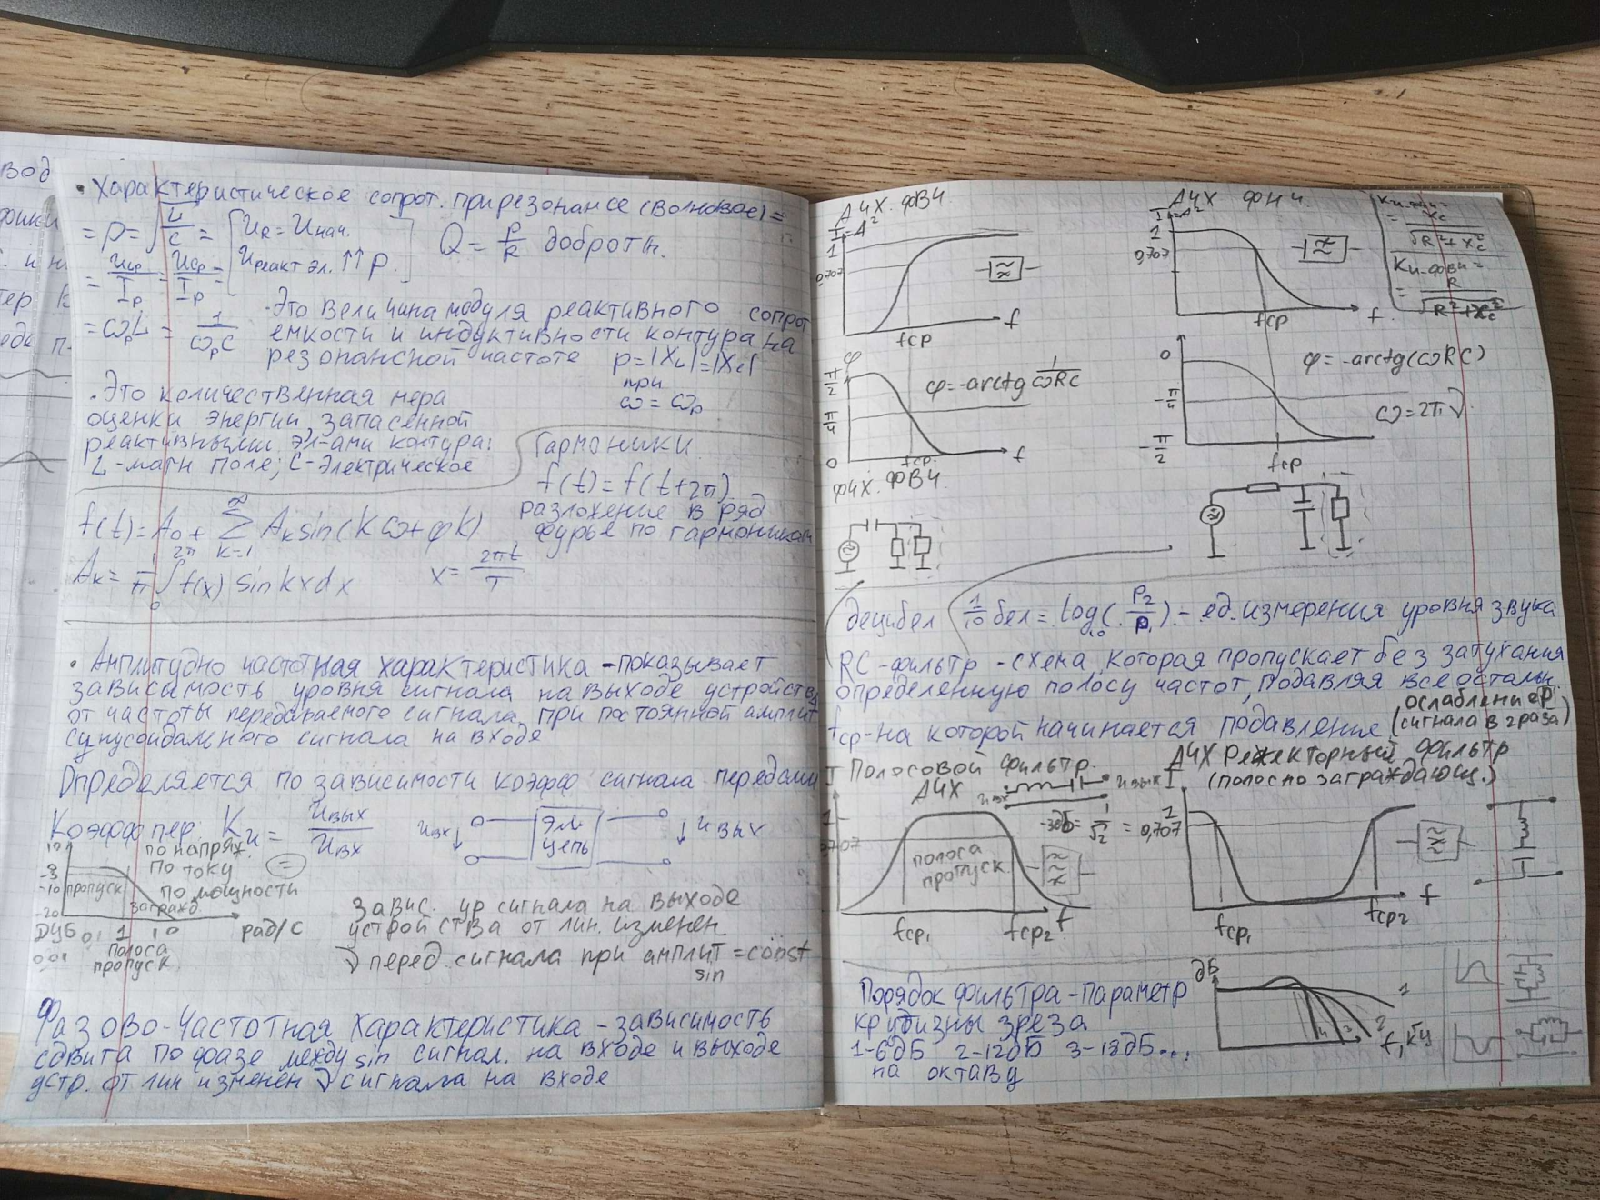 вод
• Характеристическое сопрот. при резонансе (волновое) =
= ρ = √(L/C) = [U_R = U_нач. U_реакт эл. ↑↑ ρ.] Q = ρ/R добротн.
= U_Lp/I_p = U_Cp/I_p =
= ω_p L = 1/(ω_p C)
• Это величина модуля реактивного сопрот
емкости и индуктивности контура на
резонансной частоте ρ = |X_L| = |X_C|
при
ω = ω_p
• Это количественная мера
оценки энергии, запасенной
реактивными эл-ами контура:
L - магн поле; C - Электрическое
Гармоники
f(t) = f(t+2π)
разложение в ряд
фурье по гармоникам
f(t) = A_0 + ∑_{k=1}^{∞} A_k sin(kω + φk)
A_k = 1/π ∫_0^{2π} f(x) sin kx dx x = 2πt/T
• Амплитудно частотная характеристика - показывает
зависимость уровня сигнала на выходе устройства
от частоты передаваемого сигнала при постоянной амплит
синусоидального сигнала на входе
Определяется по зависимости коэфф сигнала передачи
Коэфф пер. K_и = U_вых/U_вх
U_вх ↓ Эл. цепь ↓ U_вых
по напряж.
по току (=)
по мощности
-3
-10
-20
пропуск
загражд.
ДЦБ 0,1 1 10 рад/с
0,01 полоса
пропуск
Завис. ур сигнала на выходе
устройства от лин. изменен
ν перед. сигнала при амплит = const
sin
Фазово-Частотная Характеристика - зависимость
сдвига по фазе между sin сигнал. на входе и выходе
устр. от лин изменен ν сигнала на входе
АЧХ. ФВЧ
I = A²
1
0,707
fср f
АЧХ ФНЧ
I = A²
1
0,707
fср f
K_и-фнч =
= X_c/√(R²+X_c²)
K_и-фвч =
= R/√(R²+X_c²)
φ
π/2
π/4
0
fср f
φ = -arctg 1/(ωRC)
ФЧХ. ФВЧ
0
-π/4
-π/2
fср
φ = -arctg(ωRC)
ω = 2πν
децибел 1/10 бел = log₁₀(P₂/P₁) - ед. измерения уровня звука
RC-фильтр - схема, которая пропускает без затухания
определенную полосу частот, подавляя все остальн.
fср - на которой начинается подавление (ослабление P сигнала в 2 раза)
I Полосовой фильтр.
АЧХ
U_вх U_вых
-3дБ = 1/√2 = 0,707
1
полоса
пропуск
fср₁ fср₂ f
АЧХ Режекторный фильтр
(полосно заграждающ.)
I
1
fср₁ fср₂ f
Порядок фильтра - параметр
крутизны среза
1-6дБ 2-12дБ 3-18дБ...
на октаву
дБ
1
2
3
4
f, кГц